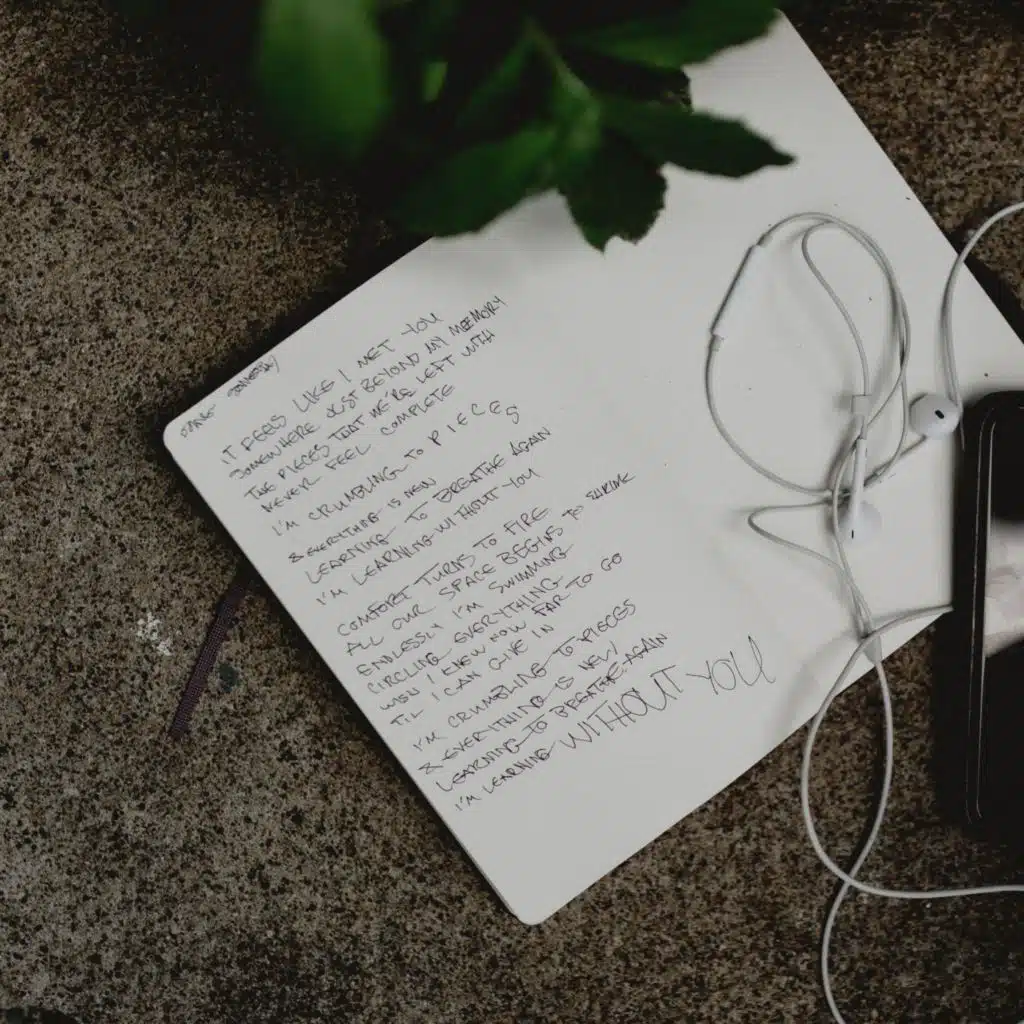 IT FEELS LIKE I MET YOU
SOMEWHERE JUST BEYOND MY MEMORY
THE PIECES THAT WE'RE LEFT WITH
NEVER FEEL COMPLETE
I'M CRUMBLING TO PIECES
& EVERYTHING IS NEW
LEARNING TO BREATHE AGAIN
I'M LEARNING WITHOUT YOU
COMFORT TURNS TO FIRE
ALL OUR SPACE BEGINS TO SHRINK
ENDLESSLY I'M SWIMMING
CIRCLING EVERYTHING
WISH I KNEW HOW FAR TO GO
TIL I CAN GIVE IN
I'M CRUMBLING TO PIECES
& EVERYTHING IS NEW
LEARNING TO BREATHE AGAIN
I'M LEARNING WITHOUT YOU